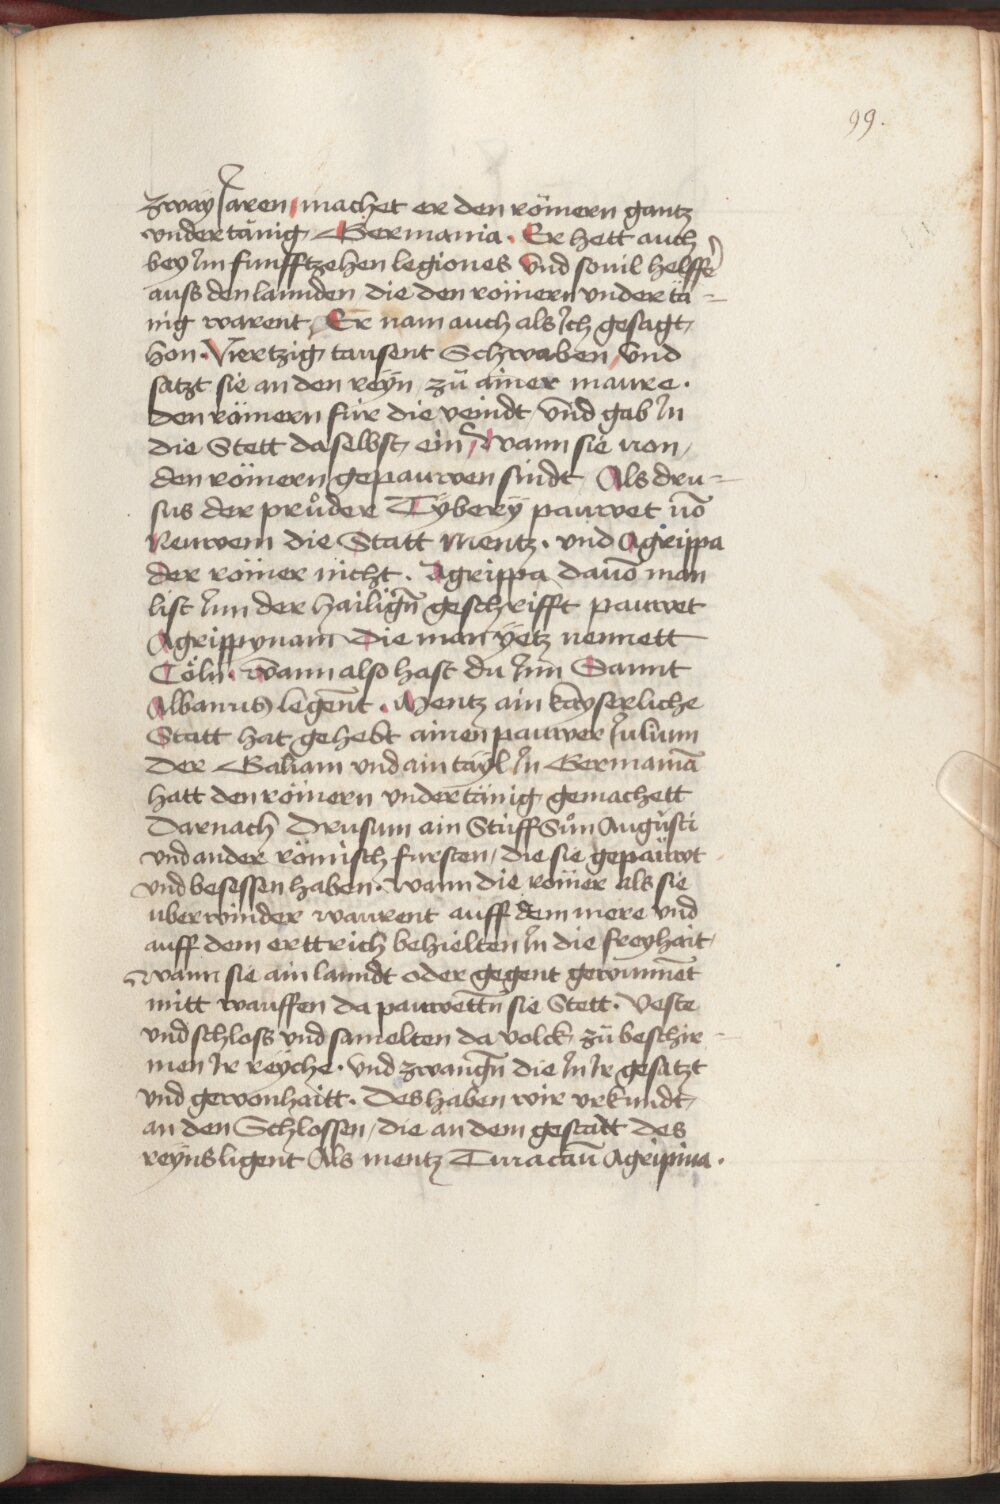 99.
zway Jaren machet er den römern gantz
vndertänig Germania. Er hett auch
bey Jm funfftzehen legiones vnd souil helffer
auss den lannden die den römern vndertä-
nig warent, Er nam auch als Jch gesagt
hon. Viertzig tausent Schwaben vnd
satzt sie an den reyn zů ainer maure.
den römern für die veindt, vnd gab Jn
die Stett daselbst, ein, Wann sie von
den römern gepauwen sindt, Als dru-
sus der průder Tybery pauwet vō
Neuwem die Statt Mentz. vnd Agrippa
der römer nicht. Agrippa dauō man
list Jnn der hailigñ geschrifft pauwet
Agrippynam die man yetz nennett
Cöln. wann also hast du Jnn Sannt
Albanus legent. Mentz ain kayserliche
Statt hat gehebt ainen pauwer Julium
der Galiam vnd ain tayl Jn Germaniā
hatt den römern vndertänig gemachett
Darnach Drusum ain Stüff Sůn Augusti
vnd ander römisch fursten, die sie gepauwt
vnd besessen haben. wann die römer als sie
uberwinder waurent auff dem mere vnd
auff dem erttrich behielten Jn die freyhait,
wann sie ain lanndt oder gegent gewunnēt
mitt wauffen da pauwettñ sie Stett. Veste
vnd schloss vnd samelten da volck zů beschir-
men Jr reyche. vnd zwangñ die Jn Jr gesatzt
vnd gewonhaitt. Des haben wir vrkundt,
an den Schlossen, die an dem gestadt des
reyns ligent Als mentz Turacaū Agripina.